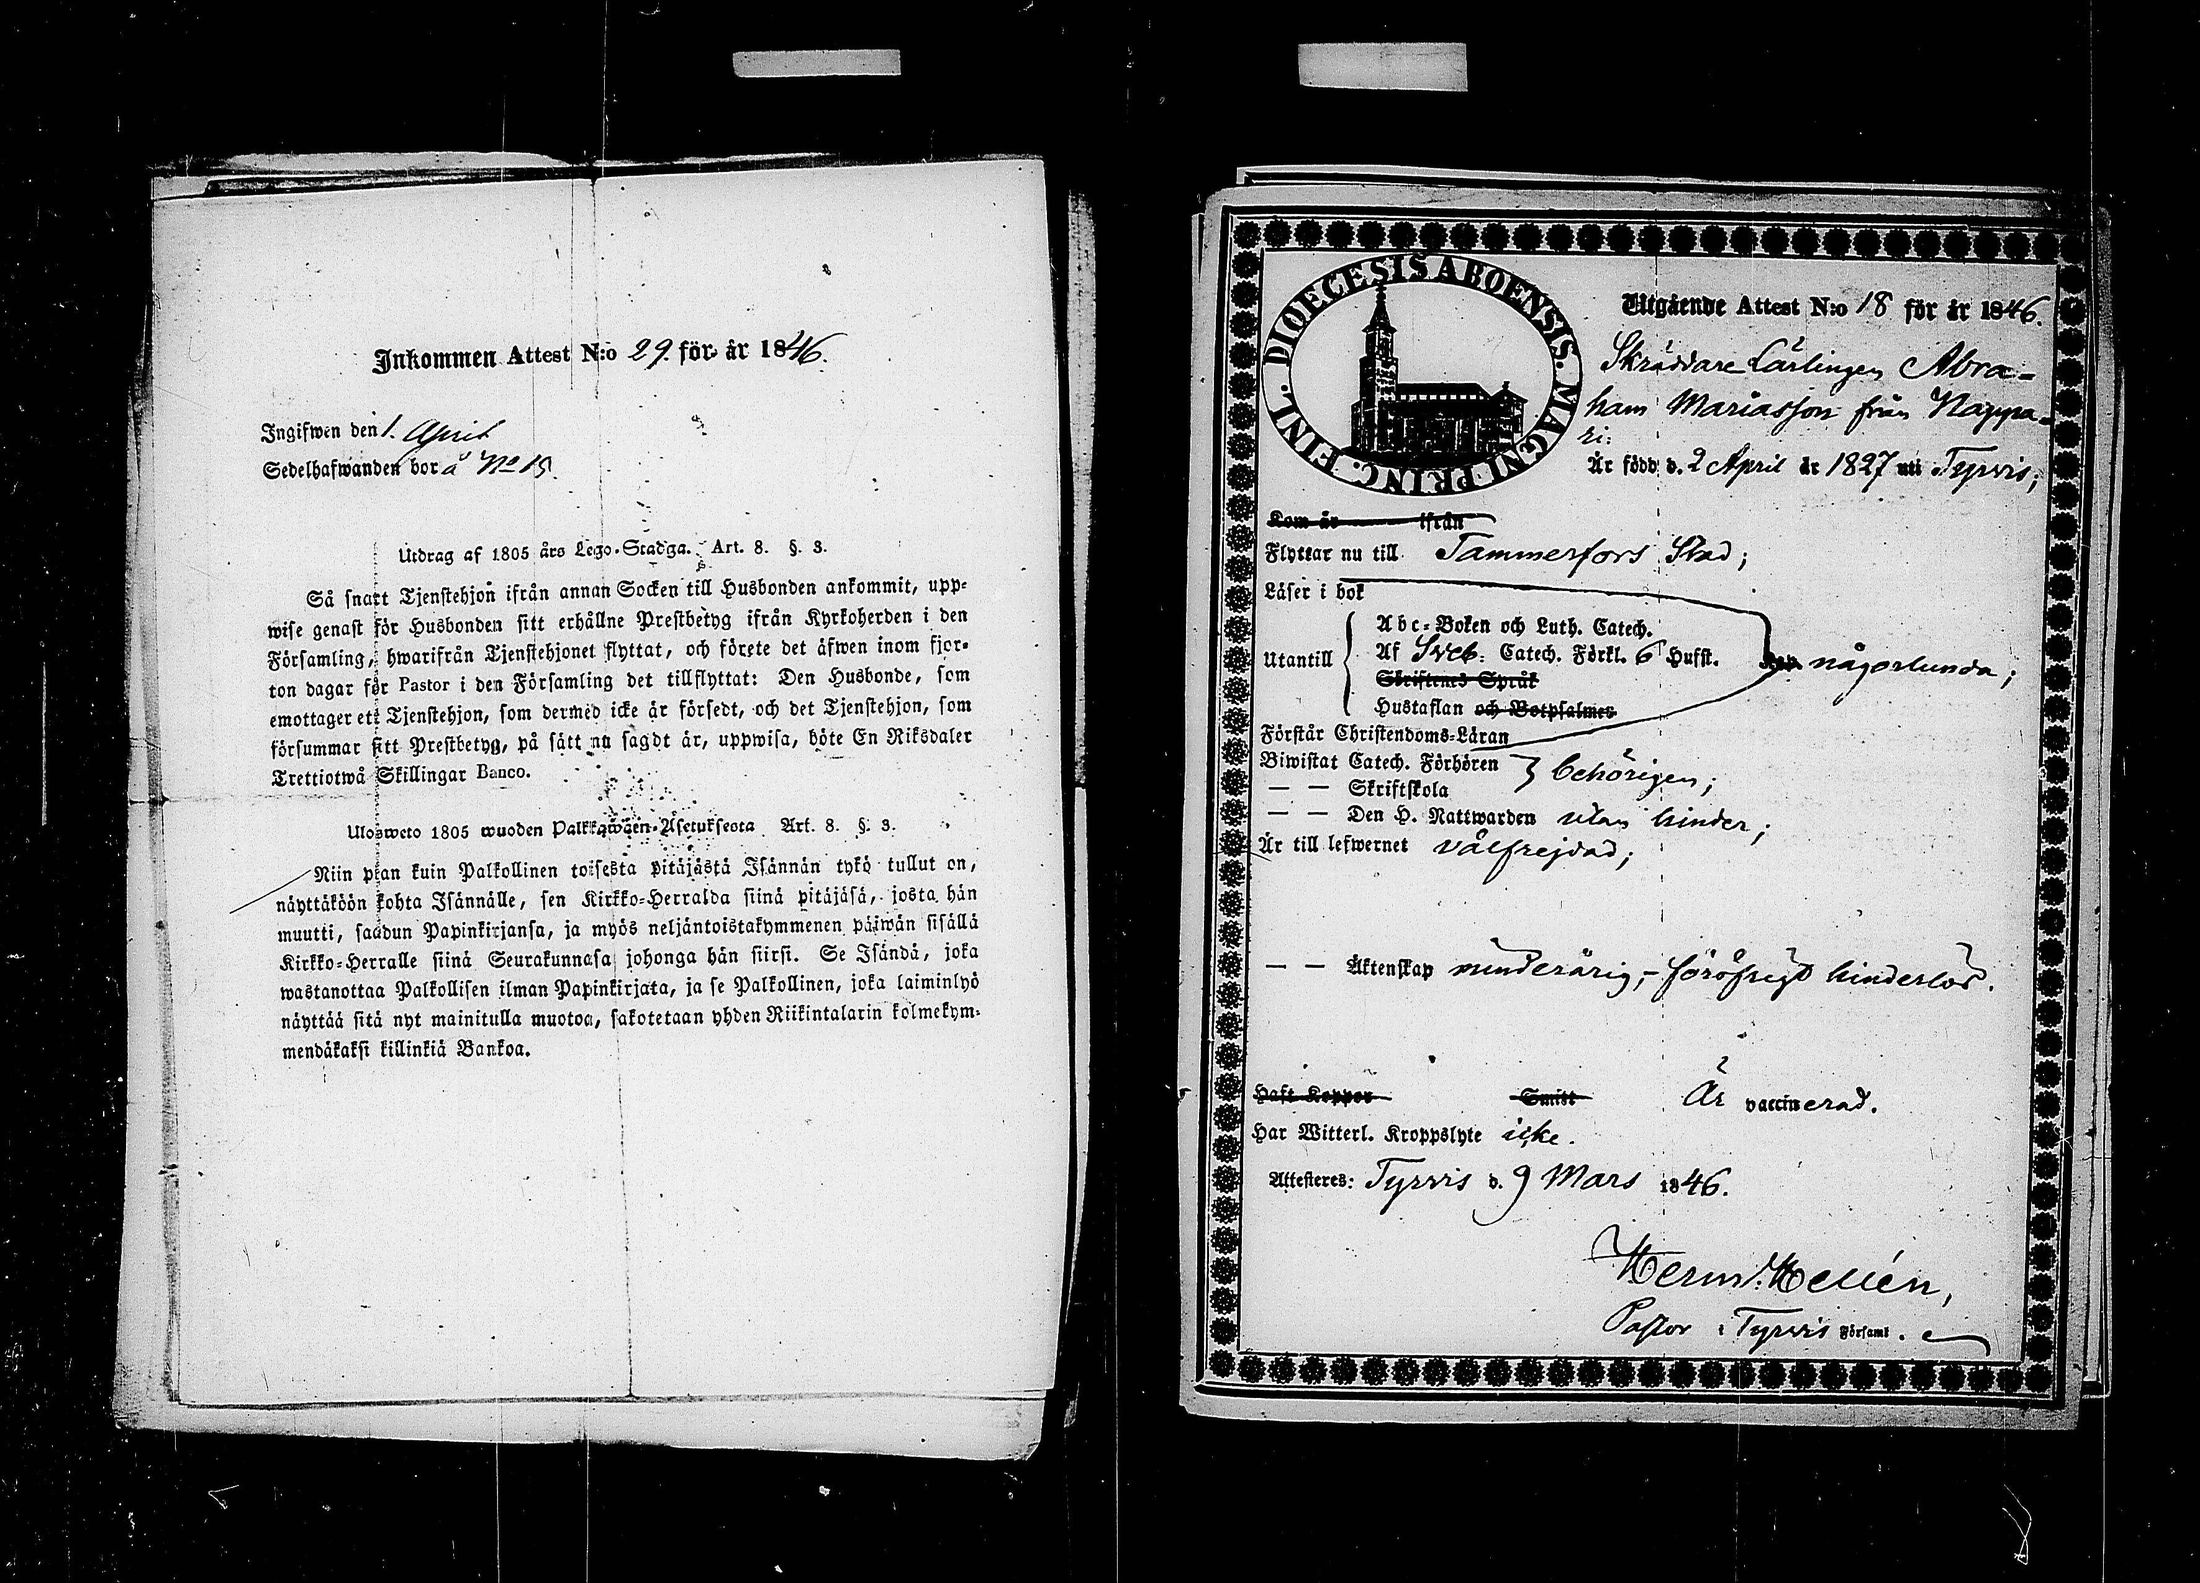 Inkommen Attest N:o 29. för år 1846.
Ingifwen den 1. April
Sedelhafwanden bor å No 15.
Utdrag af 1805 års Lego-Stadga. Art. 8. §. 3.
Så snart Tjenstehjon ifrån annan Socken till Husbonden ankommit, upp-
wise genast för Husbonden sitt erhållne Prestbetyg ifrån Kyrkoherden i den
Församling, hwarifrån Tjenstehjonet flyttat, och förete det äfwen inom fjor-
ton dagar för Pastor i den Församling det tillflyttat: Den Husbonde, som
emottager ett Tjenstehjon, som dermed icke är försedt, och det Tjenstehjon, som
försummar sitt Prestbetyg, på sätt nu sagdt är, uppwisa, böte En Riksdaler
Trettiotwå Skillingar Banco.
Ulosweto 1805 wuoden Palkkawäen-Asetuksesta Art. 8. §. 3.
Niin pian kuin Palkollinen toisesta pitäjästä Isännän tykö tullut on,
näyttäköön kohta Isännälle, sen Kirkko-Herralda siinä pitäjäsä, josta hän
muutti, saadun Papinkirjansa, ja myös neljäntoistakymmenen päiwän sisällä
Kirkko-Herralle siinä Seurakunnasa johonga hän siirsi. Se Isändä, joka
wastanottaa Palkollisen ilman Papinkirjata, ja se Palkollinen, joka laiminlyö
näyttää sitä nyt mainitulla muotoa, sakotetaan yhden Riikintalarin kolmekym-
mendäkaksi killinkiä Bankoa.
DIOECESIS ABOENSIS. MAGNI PRINC. FINL.
Utgående Attest N:o 18 för år 1846.
Skräddare Lärlingen Abra-
ham Mariasson från Nappa-
ri:
Är född d. 2 April år 1827 uti Tyrvis;
Kom år ifrån
Flyttar nu till Tammerfors Stad;
Läser i bok
Utantill
Abc-Boken och Luth. Catech.
Af Sveb: Catech. Förkl. 6 Hufst.
Skriftenes Språk
Hustaflan och Botpsalmer
någorlunda;
Förstår Christendoms-Läran
Biwistat Catech. Förhören
— — Skriftskola
behörigen;
— — Den H. Nattwarden utan hinder;
Är till lefwernet välfrejdad;
— — Äktenskap minderårig, föröfrigt hinderlös.
Haft Koppor Smitt Är vaccinerad.
Har Witterl. Kroppslyte icke.
Attesteres: Tyrvis d. 9 Mars 1846.
Herm. Hellén,
Pastor i Tyrvis Församl.